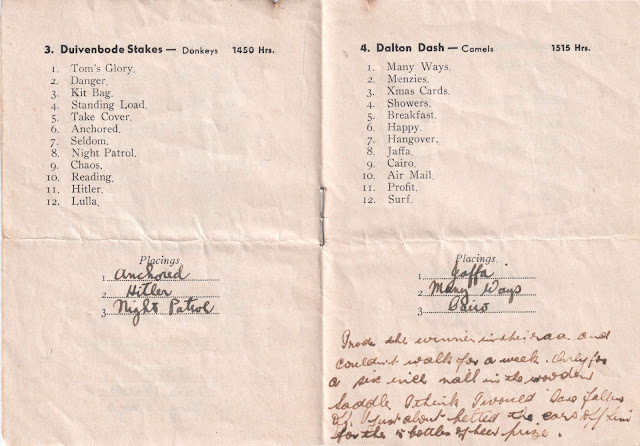 3. Duivenbode Stakes — Donkeys 1450 Hrs.
1. Tom's Glory.
2. Danger.
3. Kit Bag.
4. Standing Load.
5. Take Cover.
6. Anchored.
7. Seldom.
8. Night Patrol.
9. Chaos.
10. Reading.
11. Hitler.
12. Lulla.
Placings
1 Anchored
2 Hitler
3 Night Patrol
4. Dalton Dash — Camels 1515 Hrs.
1. Many Ways.
2. Menzies.
3. Xmas Cards.
4. Showers.
5. Breakfast.
6. Happy.
7. Hangover.
8. Jaffa.
9. Cairo.
10. Air Mail.
11. Profit.
12. Surf.
Placings
1 Jaffa
2 Many Ways
3 Cairo
I rode the winner in this race and
couldn't walk for a week. Only for
a six inch nail in the wooden
saddle I think I would have fallen
off. I just about belted the ears off him
for the 5 bottles of beer prize.